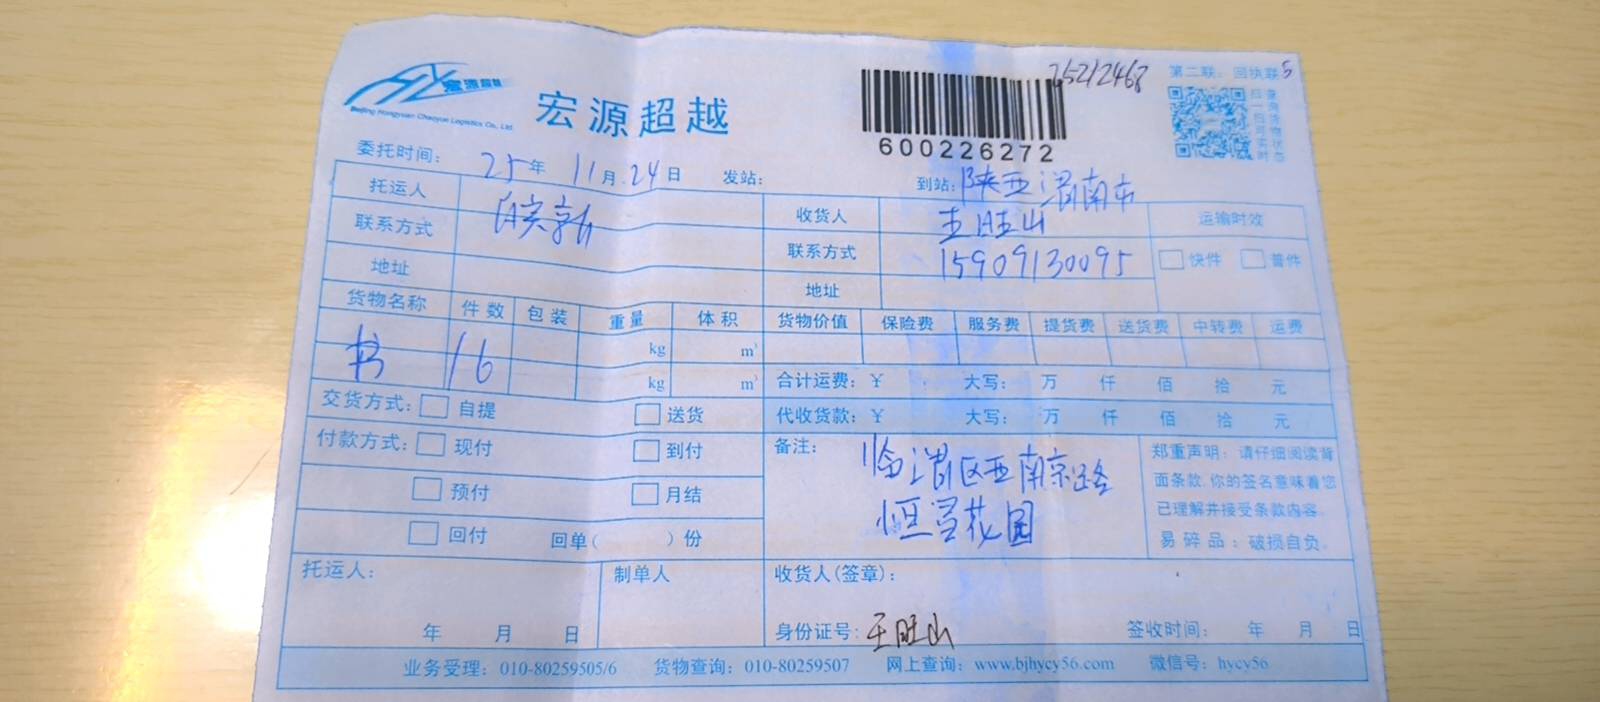 宏源超越
Beijing Hongyuan Chaoyue Logistics Co., Ltd.
宏源超越
600226272
25212468
第二联：回执联
5
扫一扫
委托时间： 25年 11月 24日 发站： 到站：陕西渭南市
托运人 收货人 王旺山 运输时效
联系方式 联系方式 15909130095 快件 普件
地址 地址
货物名称 件数 包装 重量 体积 货物价值 保险费 服务费 提货费 送货费 中转费 运费
书 16 kg m³
kg m³ 合计运费：￥ 大写： 万 仟 佰 拾 元
交货方式： 自提 送货 代收货款：￥ 大写： 万 仟 佰 拾 元
付款方式： 现付 到付
预付 月结
回付 回单（ ）份
备注： 临渭区西南京路
花园
郑重声明：请仔细阅读背
面条款，你的签名意味着您
已理解并接受条款内容。
易碎品：破损自负。
托运人： 制单人 收货人(签章)：
年 月 日 身份证号：王旺山 签收时间： 年 月 日
业务受理：010-80259505/6 货物查询：010-80259507 网上查询：www.bjhycy56.com 微信号：hycy56